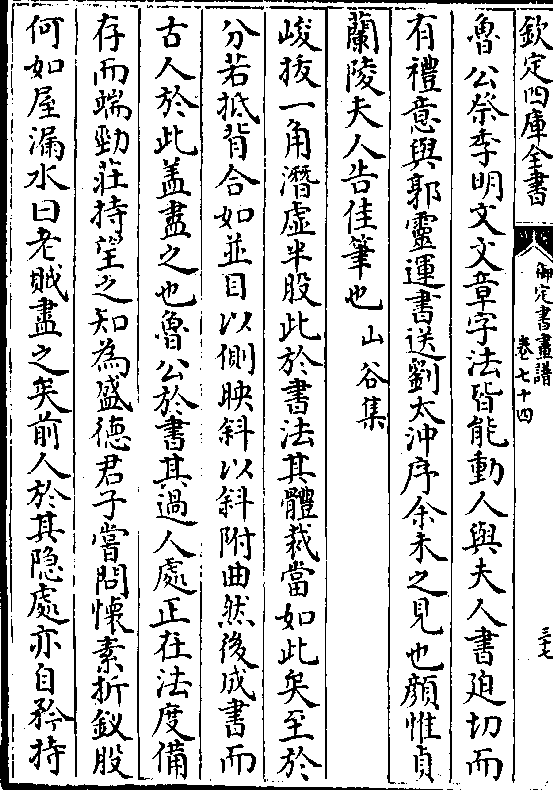 欽定四庫全書
御定書畫譜
卷七十四
三七
魯公祭季明文文章字法皆能動人與夫人書廹切而
有禮意與郭靈運書送劉太沖序余未之見也顔惟貞
蘭陵夫人告佳筆也 山谷集
峻拔一角潛虚半股此於書法其體裁當如此矣至於
分若抵背合如並目以側映斜以斜附曲然後成書而
古人於此盖盡之也魯公於書其過人處正在法度備
存而端勁莊持望之知為盛德君子嘗問懷素折釵股
何如屋漏水曰老賊盡之矣前人於其隐處亦自矜持